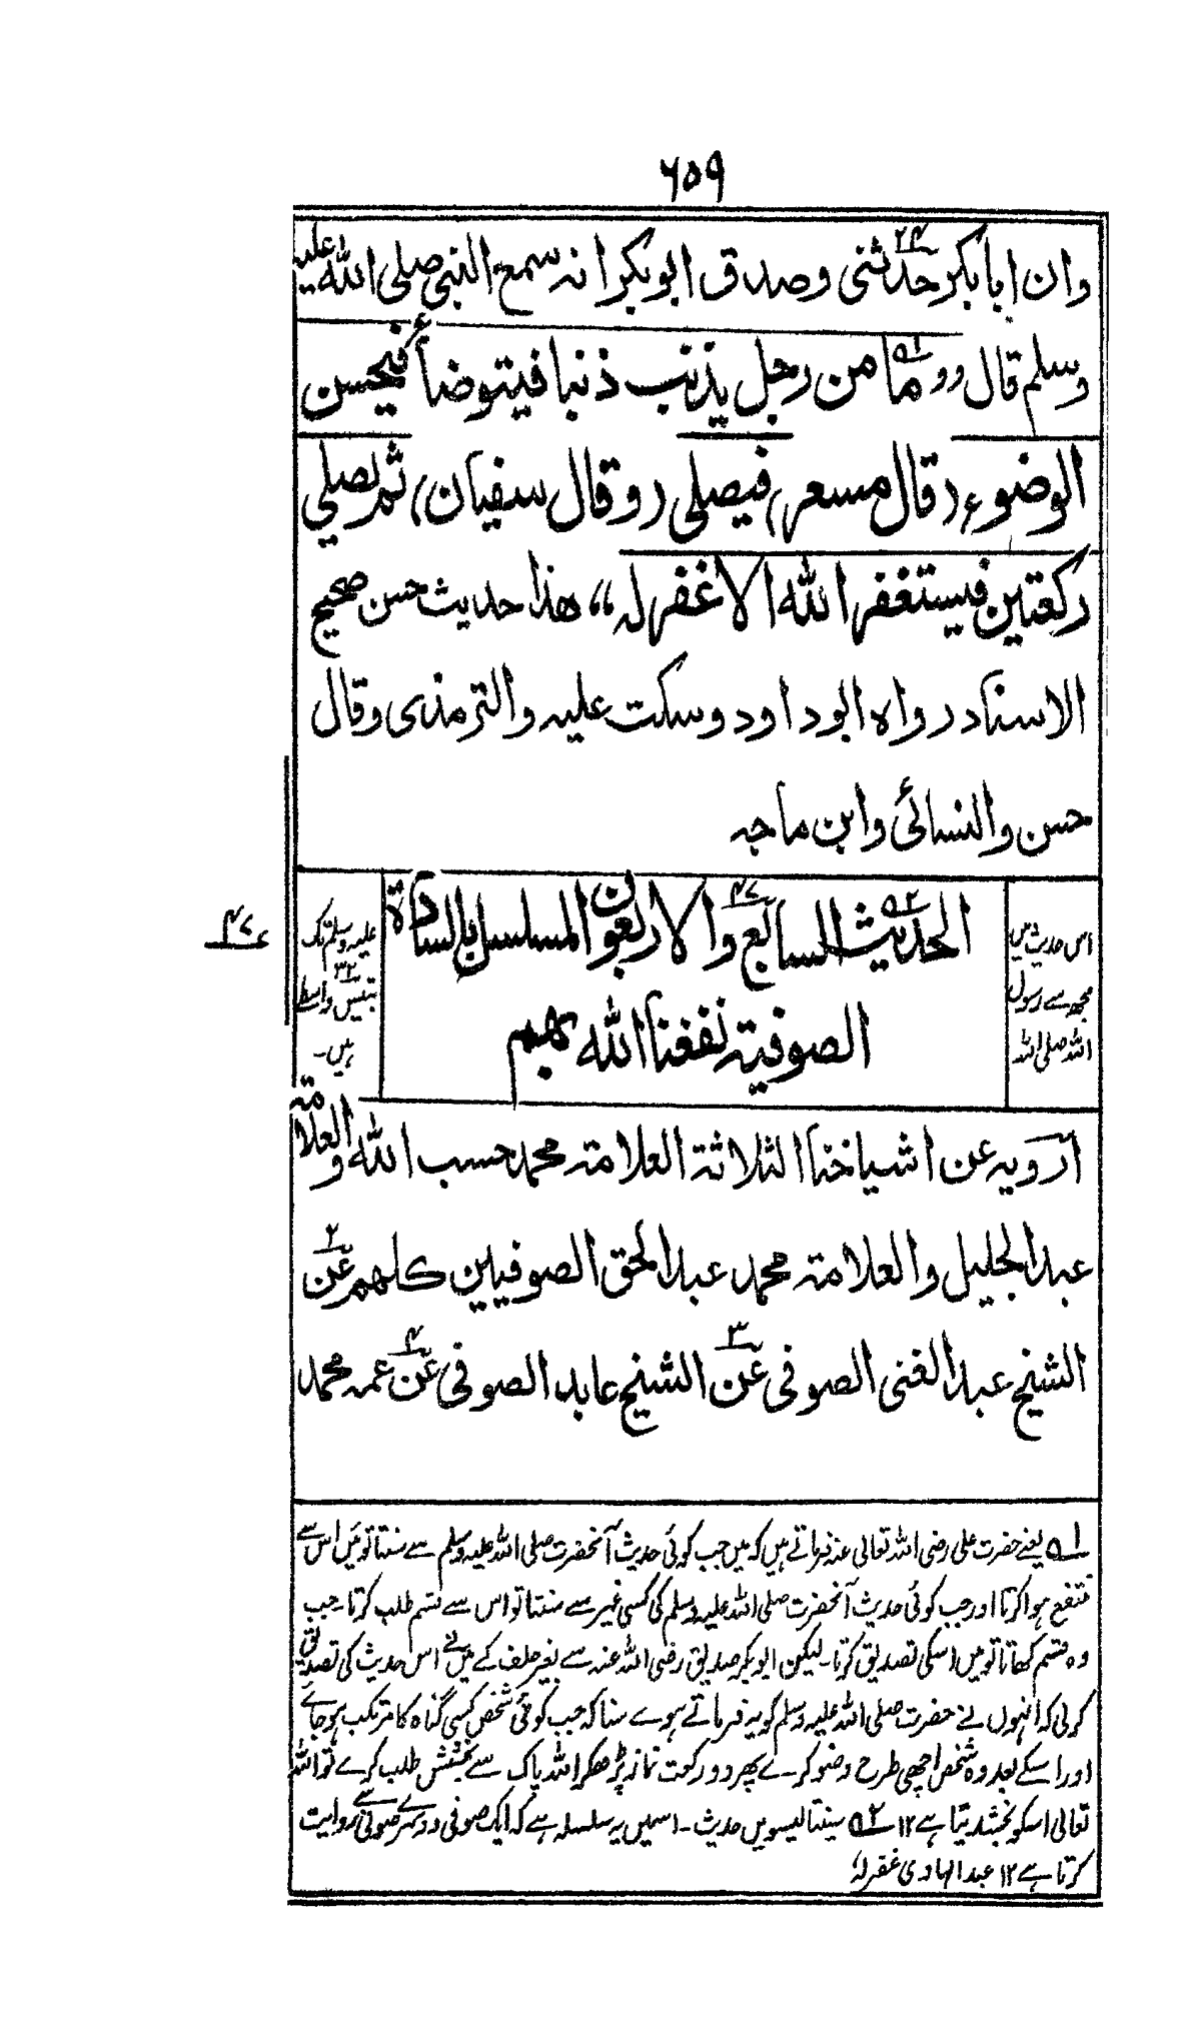 ۶۵۹
وان ابا بکر حدثنی وصدق ابو بکر انہ سمع النبی صلی اللہ علیہ
وسلم قال ،، ما من رجل یذنب ذنبا فیتوضأ فیحسن
الوضوء (قال مسعر) فیصلی (وقال سفیان) ثم یصلی
رکعتین فیستغفر اللہ الا غفر لہ ،، ھذا حدیث حسن صحیح
الاسناد رواہ ابو داود وسکت علیہ والترمذی وقال
حسن والنسائی وابن ماجہ
الحدیث السابع والاربعون المسلسل بالسادۃ
الصوفیۃ نفعنا اللہ بھم
اس حدیث میں
مجھ سے رسول
اللہ صلی اللہ
علیہ وسلم تک
بتیس واسطے
ہیں۔
۴۷
ارویہ عن اشیاخنا الثلاثۃ العلامۃ محمد حسب اللہ والعلامۃ
عبد الجلیل والعلامۃ محمد عبد الحق الصوفیین کلھم عن
الشیخ عبد الغنی الصوفی عن الشیخ عابد الصوفی عن عمہ محمد
۵۱ یعنے حضرت علی رضی اللہ تعالی عنہ فرماتے ہیں کہ میں جب کوئی حدیث آنحضرت صلی اللہ علیہ وسلم سے سنتا تو میں اس سے
منتفع ہوا کرتا اور جب کوئی حدیث آنحضرت صلی اللہ علیہ وسلم کی کسی غیر سے سنتا تو اس سے قسم طلب کرتا۔ جب
وہ قسم کھاتا تو میں اسکی تصدیق کرتا۔ لیکن ابو بکر صدیق رضی اللہ عنہ سے بغیر حلف کے میں نے اس حدیث کی تصدیق
کرلی کہ انہوں نے حضرت صلی اللہ علیہ وسلم کو یہ فرماتے ہوے سنا کہ جب کوئی شخص کسی گناہ کا مرتکب ہوجاے
اور اسکے بعد وہ شخص اچھی طرح وضو کرے پھر دو رکعت نماز پڑھکر اللہ پاک سے بخشش طلب کرے تو اللہ
تعالی اسکو بخشدیتا ہے ۱۲ ۵۲ سینتالیسویں حدیث۔ اسمیں یہ سلسلہ ہے کہ ایک صوفی دوسرے صوفی سے روایت
کرتا ہے ۱۲ عبد الہادی غفرلہٗ